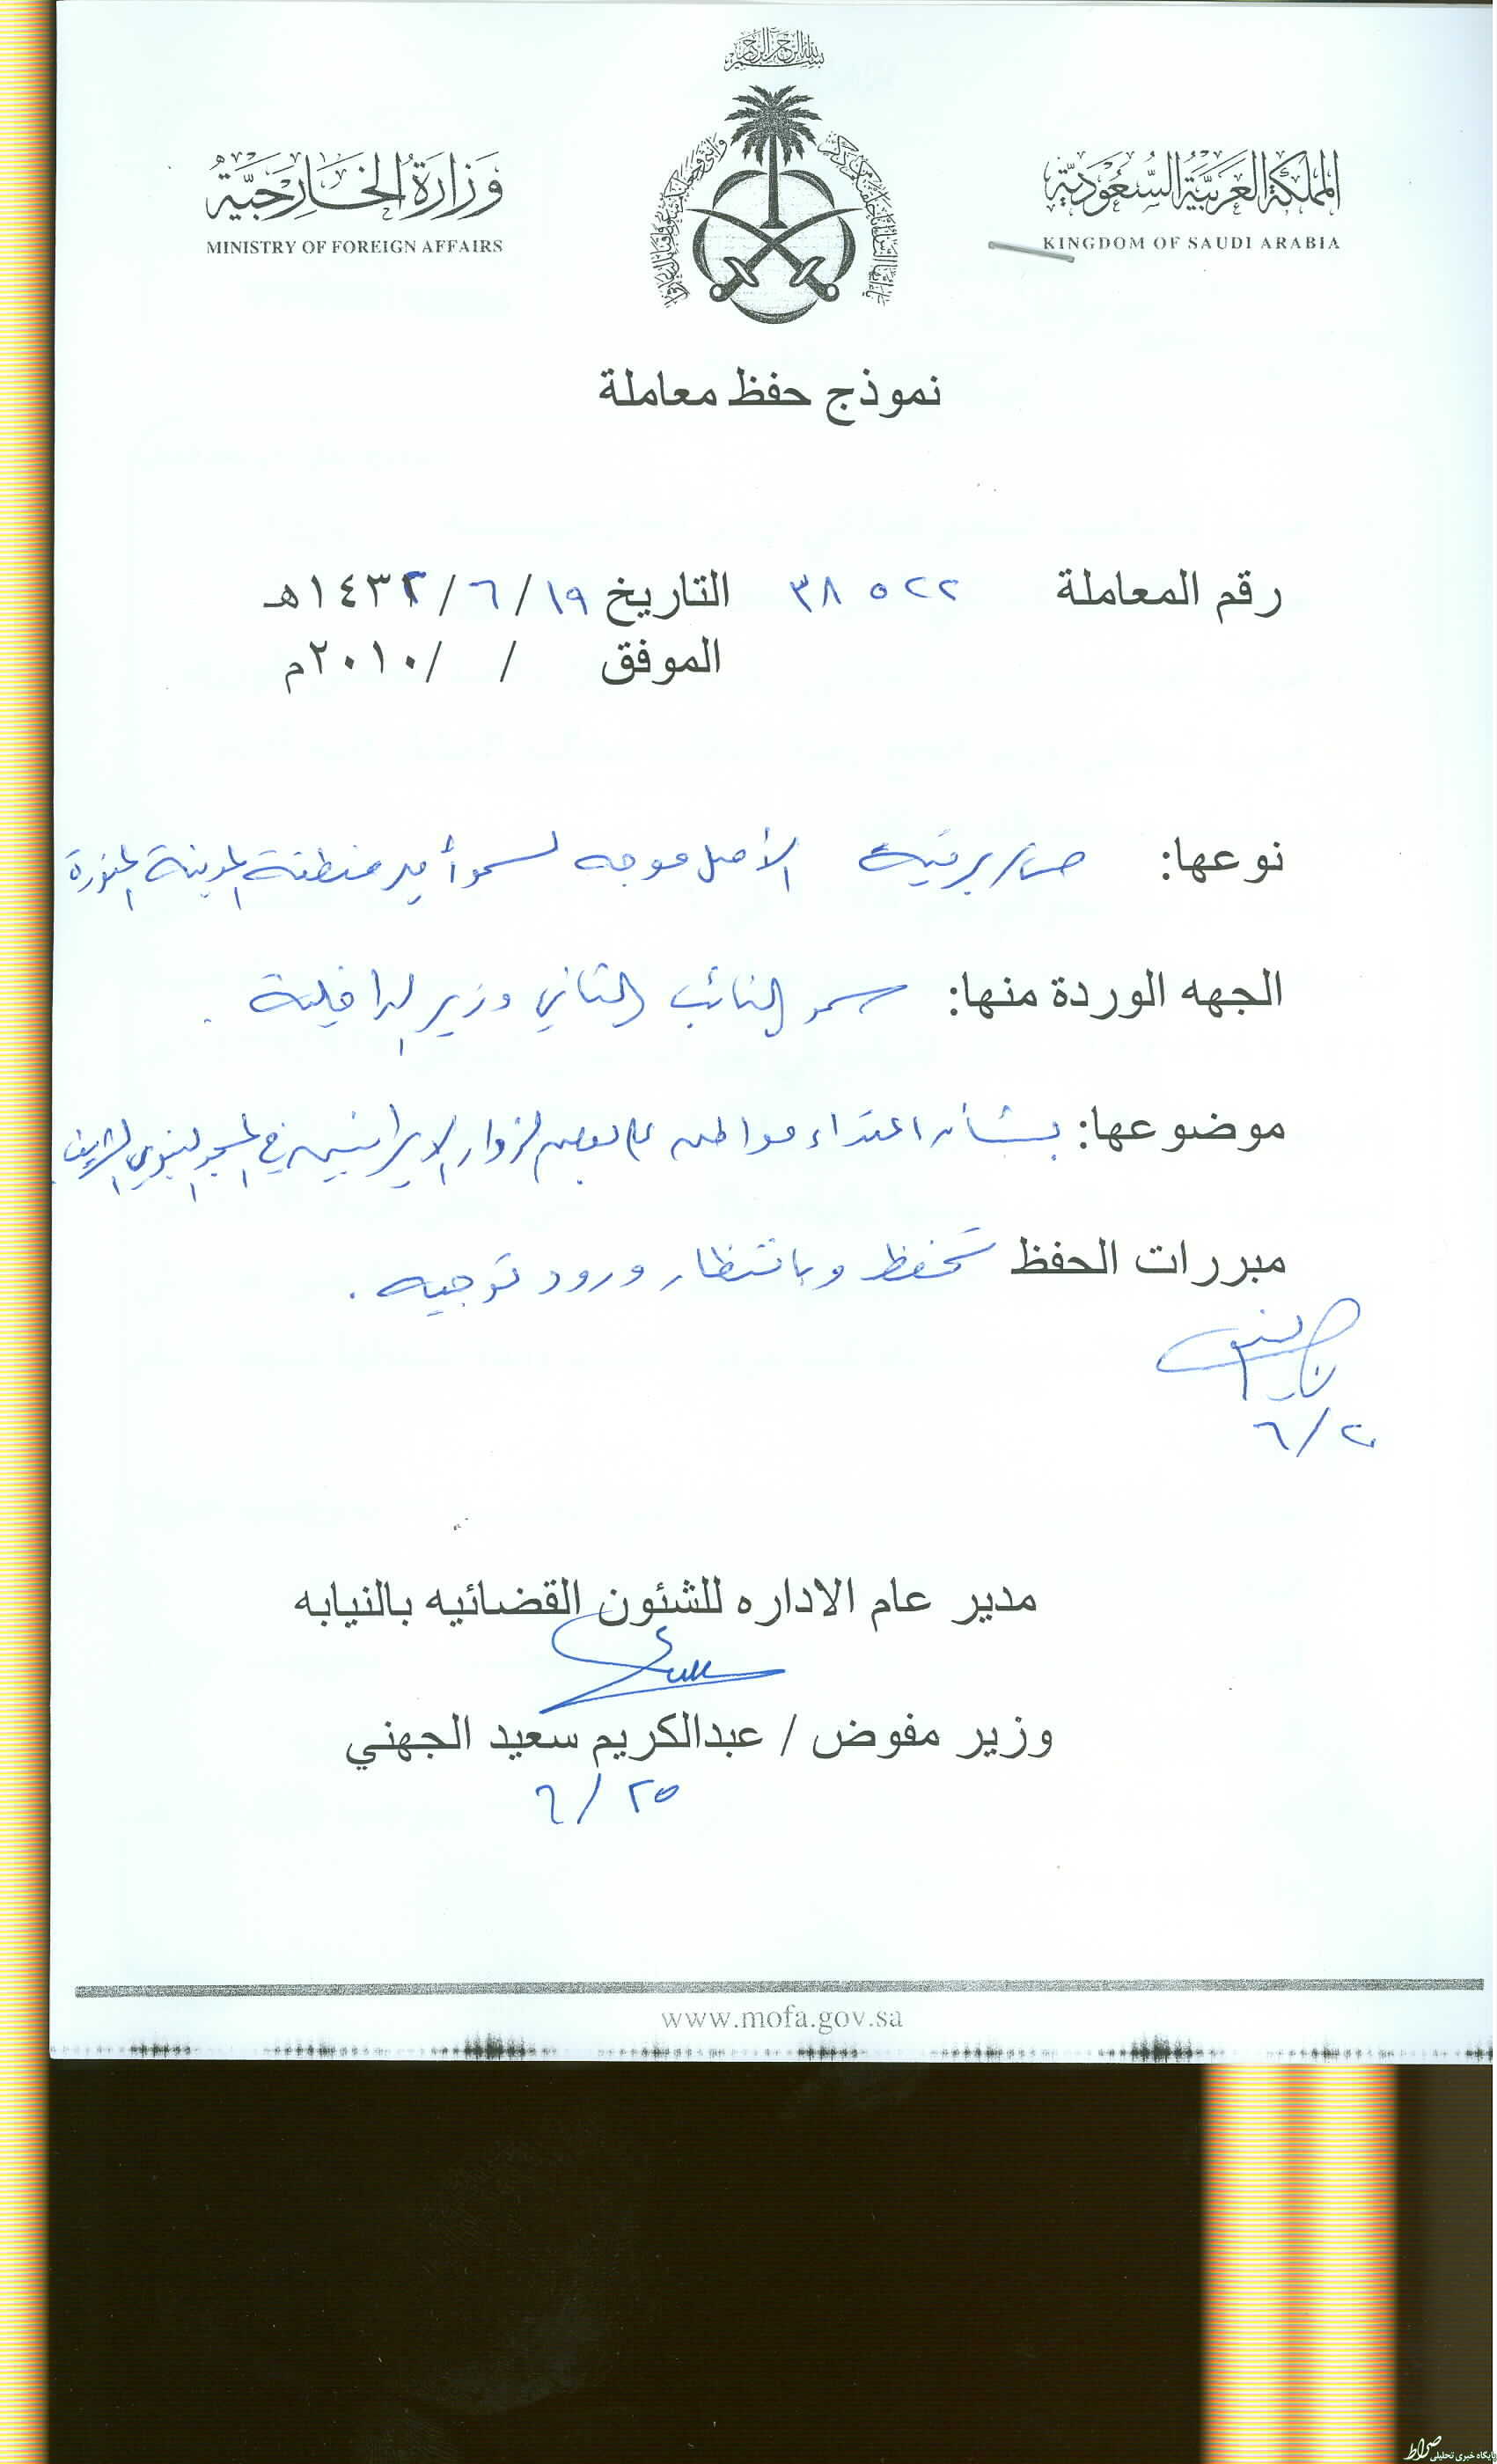 بسم الله الرحمن الرحيم
المملكة العربية السعودية
KINGDOM OF SAUDI ARABIA
وزارة الخارجية
MINISTRY OF FOREIGN AFFAIRS
نموذج حفظ معاملة
رقم المعاملة ٣٨٥٢٢ التاريخ ١٩/٦/١٤٣٢هـ
الموفق / /٢٠١٠م
نوعها: ص/برقية الأصل موجه لسمو أمير منطقة المدينة المنورة
الجهه الوردة منها: سمو النائب الثاني وزير الداخلية .
موضوعها: بشأن اعتداء مواطن على بعض الزوار الإيرانيين في المسجد النبوي الشريف .
مبررات الحفظ تحفظ وبانتظار ورود توجيه .
٢٠/٦
مدير عام الاداره للشئون القضائيه بالنيابه
وزير مفوض / عبدالكريم سعيد الجهني
٢٥/٦
www.mofa.gov.sa
صراط
پایگاه خبری تحلیلی